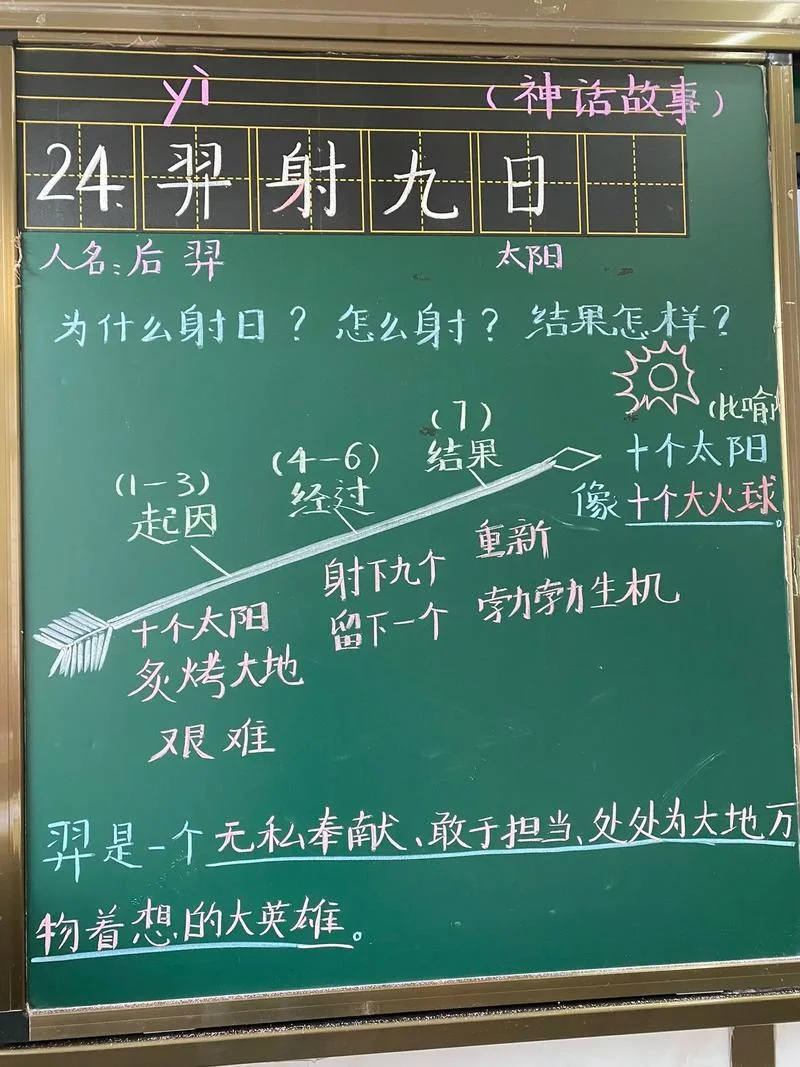 yì
（神话故事）
24.羿射九日
人名：后羿 太阳
为什么射日？怎么射？结果怎样？
（1－3）
起因
（4－6）
经过
（7）
结果
（比喻
十个太阳
像十个大火球。
十个太阳
炙烤大地
艰难
射下九个
留下一个
重新
勃勃生机
羿是一个无私奉献、敢于担当、处处为大地万
物着想的大英雄。